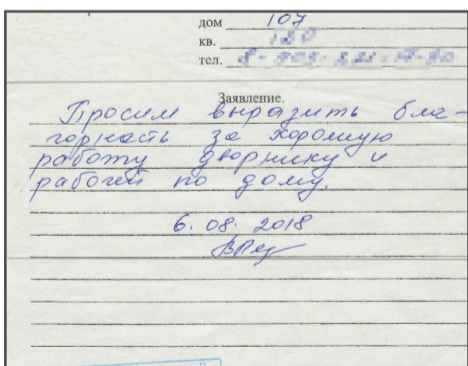 дом 107
кв.
тел.
Заявление.
Просим выразить бла-
горность за хорошую
работу дворнику и
рабочей по дому.
6. 08. 2018